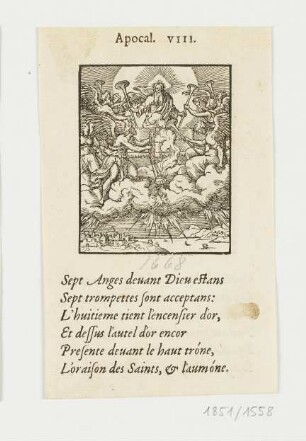 Apocal. VIII.
1668
Sept Anges deuant Dieu eſtans
Sept trompettes ſont acceptans:
L'huitième tient l'encenſier d'or,
Et deſſus l'autel d'or encor
Preſente deuant le haut trône,
L'oraiſon des Saints, & l'aumône.
1851/1558